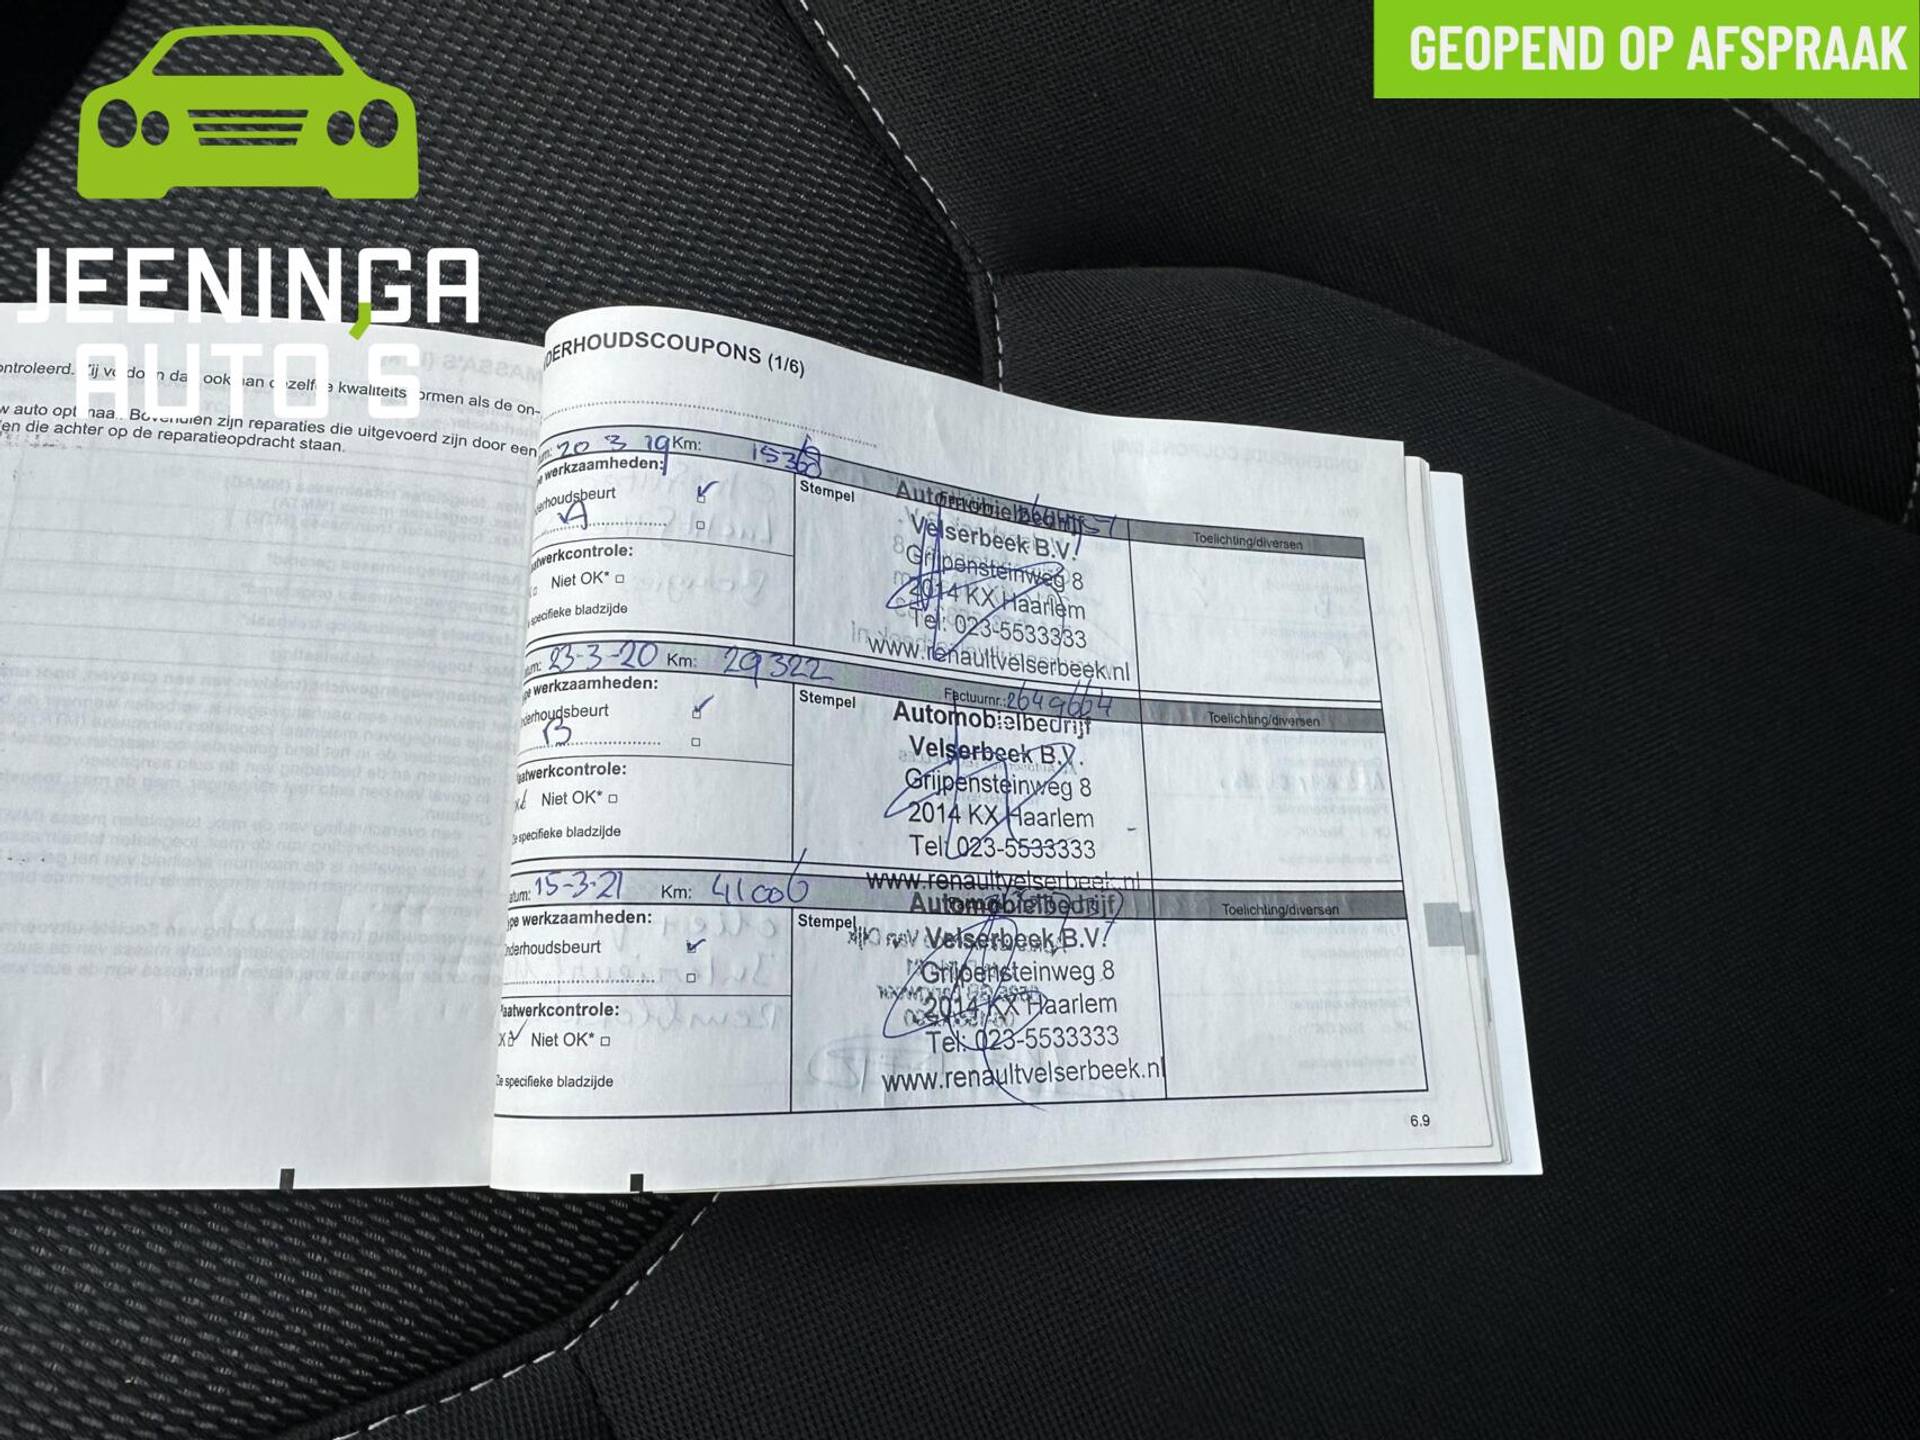 GEOPEND OP AFSPRAAK
JEENINGA
AUTO'S
kwaliteits
ormen als de on-
w auto opt
zijn reparaties die uitgevoerd zijn door een
en die achter op de reparatieopdracht staan.
DERHOUDSCOUPONS (1/6)
20 3 19 Km: 15360
werkzaamheden:
derhoudsbeurt
A
aatwerkcontrole:
Niet OK*
specifieke bladzijde
Stempel
Automobielbedrijf
Velserbeek B.V.
Grijpensteinweg 8
2014 KX Haarlem
Tel: 023-5533333
www.renaultvelserbeek.nl
Toelichting/diversen
tum: 23-3-20 Km: 29322
pe werkzaamheden:
derhoudsbeurt
B
aatwerkcontrole:
Niet OK*
Zie specifieke bladzijde
Stempel
Factuurnr.: 2649664
Automobielbedrijf
Velserbeek B.V.
Grijpensteinweg 8
2014 KX Haarlem
Tel: 023-5533333
www.renaultvelserbeek.nl
Toelichting/diversen
atum: 15-3-21 Km: 41006
ype werkzaamheden:
nderhoudsbeurt
laatwerkcontrole:
Niet OK*
Zie specifieke bladzijde
Stempel
Automobielbedrijf
Velserbeek B.V.
Grijpensteinweg 8
2014 KX Haarlem
Tel: 023-5533333
www.renaultvelserbeek.nl
Toelichting/diversen
6.9